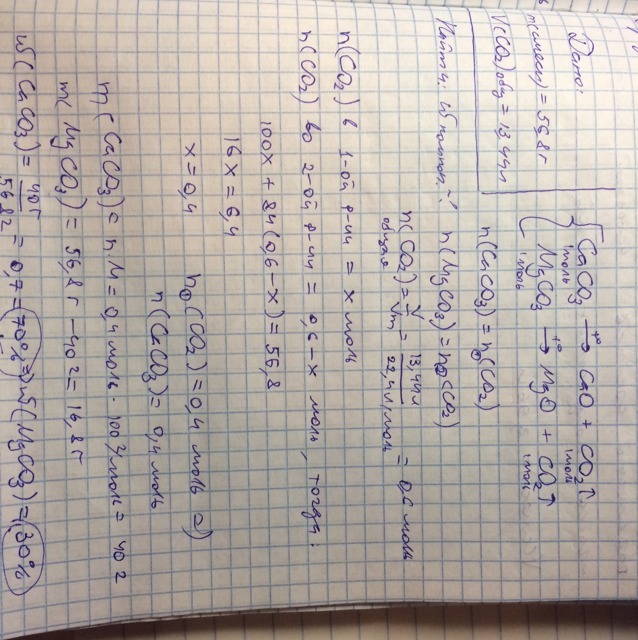 Дано:
m(смеси) = 56,8 г
V(CO₂)общ = 13,44 л
Найти: ω компон. - ?
{ CaCO₃ →t° CaO + CO₂↑
1 моль 1 моль
MgCO₃ →t° MgO + CO₂↑
1 моль 1 моль
n(CaCO₃) = n①(CO₂)
n(MgCO₃) = n②(CO₂)
n(CO₂) общее = V/Vm = 13,44 л / 22,4 л/моль = 0,6 моль
n(CO₂) в 1-ой р-ии = x моль
n(CO₂) во 2-ой р-ии = 0,6-x моль, тогда:
100x + 84(0,6-x) = 56,8
16x = 6,4
x = 0,4
n①(CO₂) = 0,4 моль ⇒)
n(CaCO₃) = 0,4 моль
m(CaCO₃) = n·M = 0,4 моль · 100 г/моль = 40 г
m(MgCO₃) = 56,8 г - 40 г = 16,8 г
ω(CaCO₃) = 40 г / 56,8 г = 0,7 = 70% ⇒ ω(MgCO₃) = 30%